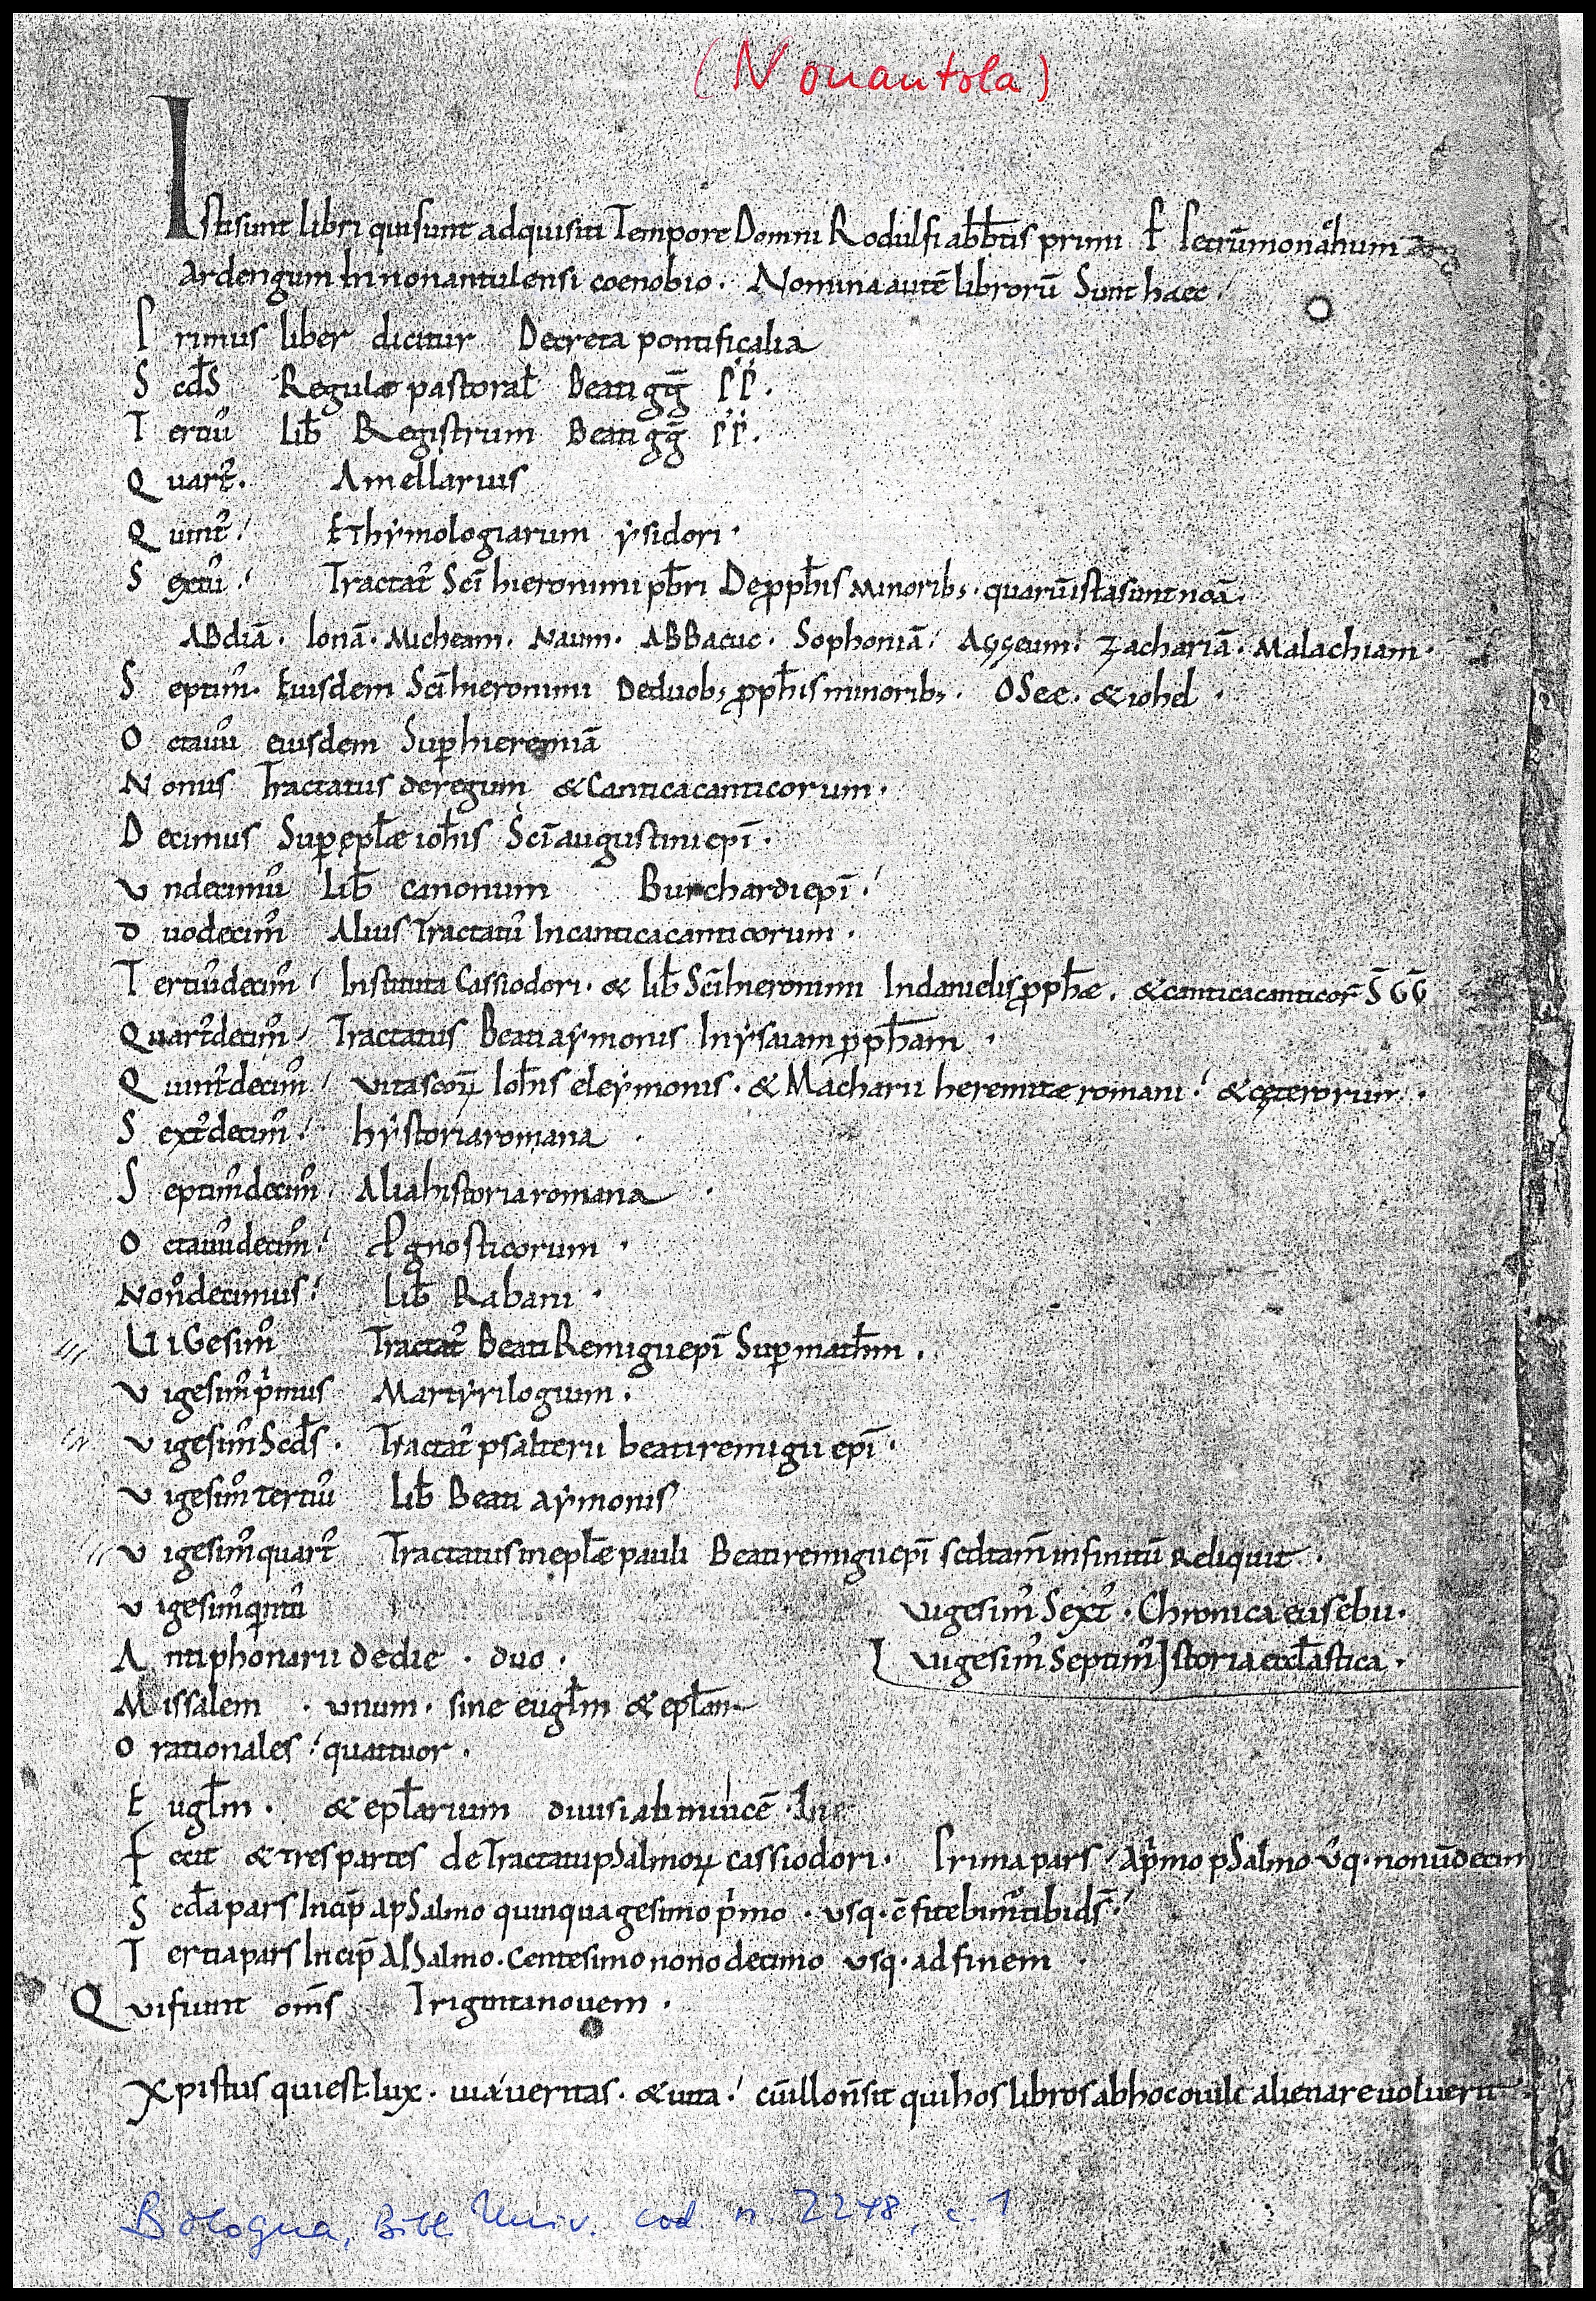 (Nonantola)
Istisunt libri quisunt adquisiti Tempore Domni Rodulfi abb̄tis primi P Petrū monachum
Ardengum In nonantulensi coenobio. Nomina autē librorū Sunt haec
Primus liber dicitur Decreta pontificalia
Scd̄s Regulæ pastoral̄ Beati gḡ PP.
Tertiu᷒ Lib̄ Registrum Beati gḡ PP.
Quart᷒. Amellarius
Quint᷒ Ethẏmologiarum ẏsidori.
Sextu᷒ Tractat᷒ Sc̄i hieronimi pb̄ri De ꝓph̄is minorib; quarū ista sunt noā.
ABdiā. Ionā. Micheam. Naum. ABBacuc. Sophoniā. Aggeum. Zachariā. Malachiam.
Septim᷒. Eiusdem Sc̄i hieronimi De duob; ꝓph̄is minorib;. OSee. & iohel.
Octauu᷒ eiusdem Suꝑ hieremiā
Nonus Tractatus de regum & Cantica canticorum.
Decimus Suꝑ epl̄æ ioh̄is Sc̄i augustini epī.
Undecimu᷒ Lib̄ canonum Burchardi epī.
Duodecim᷒ Alius Tractatu᷒ In cantica canticorum.
Tertiu᷒decim᷒ Instituta Cassiodori. & lib̄ Sc̄i hieronimi In danielis ꝓph̄æ. & cantica canticor̄ S̄ḠḠ
Quart᷒decim᷒ Tractatus Beati aẏmonis In ẏsaiam ꝓph̄am.
Quint᷒decim᷒ Vita scoꝝ Ioh̄is eleẏmonis. & Macharii heremitæ romani. & cęterorum.
Sext᷒decim᷒ hẏstoria romana
Septim᷒decim᷒ Alia historia romana.
Octauu᷒decim᷒ Ꝓgnosticorum.
Non᷒decimus Lib̄ Rabani.
UiGesim᷒ Tractat᷒ Beati Remigii epī Suꝑ math̄m.
Vigesim᷒ pⁱmus Martẏrilogium.
Vigesim᷒ Scd̄s. Tractat᷒ psalterii beati remigii epī.
Vigesim᷒ tertiu᷒ Lib̄ Beati aẏmonis
Vigesim᷒ quart᷒ Tractatus in epl̄æ pauli Beati remigii epī sed tam̄ infinitū Reliquit.
Vigesim᷒ qⁱntu᷒ Vigesim᷒ Sext᷒. Chronica eusebii.
Antiphonarii de die. duo. Vigesim᷒ Septim᷒ Istoria eccl̄astica.
Missalem. unum. sine eugl̄m & epl̄am
Orationales quattuor.
Eugl̄m. & epl̄arium diuisi ab inuicē.
Fecit & tres partes de Tractatu pSalmoꝝ cassiodori. Prima pars Apⁱmo pSalmo Usq. nonūdecim
Scd̄a pars Incip̄ A pSalmo quinquagesimo pⁱmo. usq. c̄fitebim᷒ tibi d̄s.
Tertia pars Incip̄ A pSalmo. Centesimo nono decimo usq. ad finem
Qui fiunt om̄s Triginta nouem.
Xpistus qui est lux. uia ueritas. & uita. cū illo n̄ sit qui hos libros ab hoc ouile alienare uoluerit
Bologna, Bibl. Univ. cod. n. 2248, c. 1